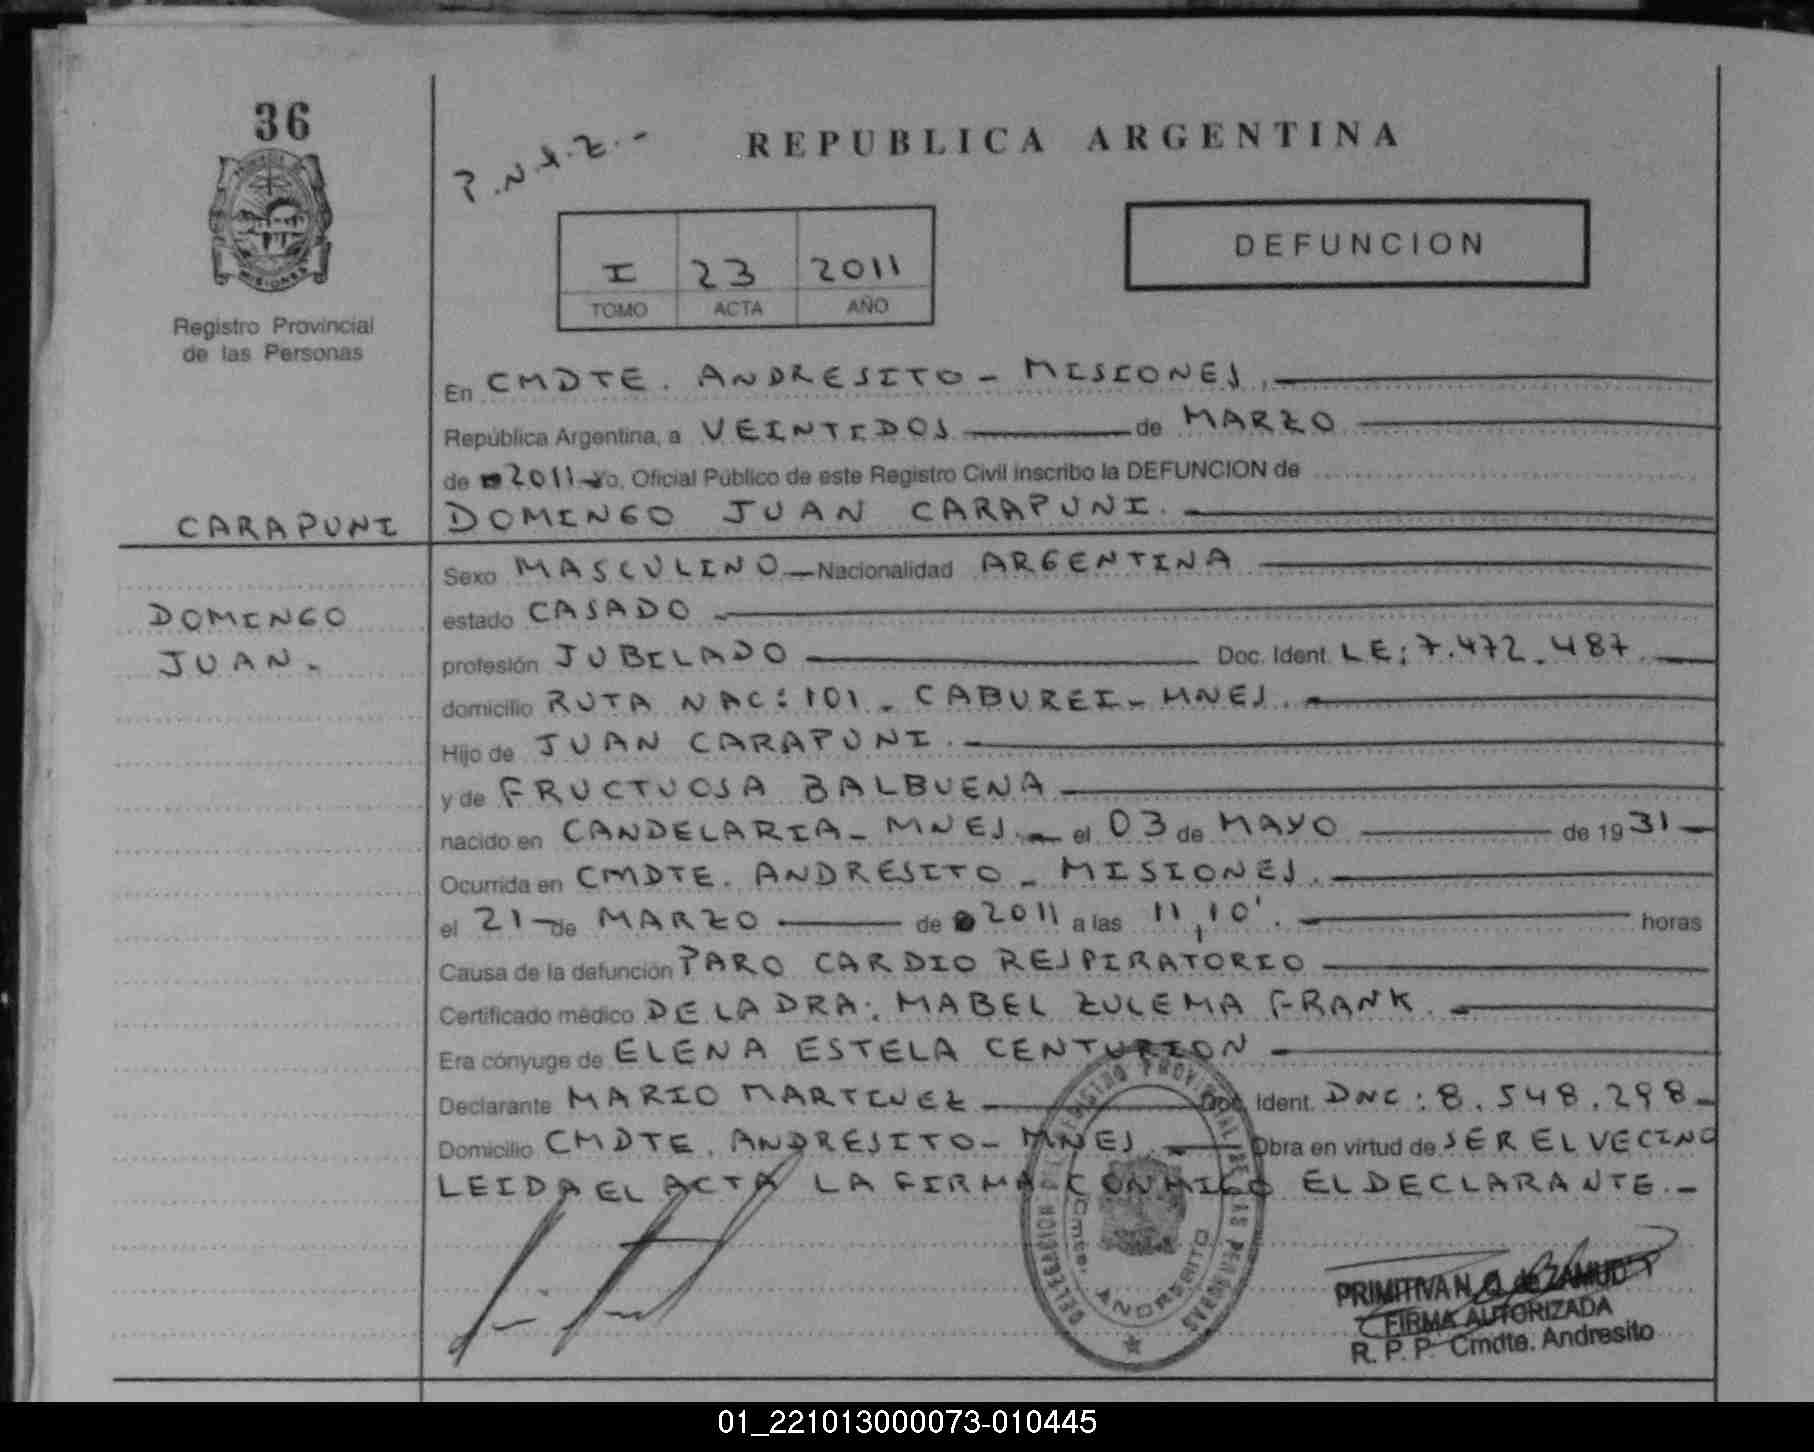 36
P.N.Z.-
REPUBLICA ARGENTINA
MISIONES
I 23 2011
TOMO ACTA AÑO
DEFUNCION
Registro Provincial
de las Personas
En CMDTE. ANDRESITO - MISIONES.
República Argentina, a VEINTIDOS de MARZO
de 2011 Yo, Oficial Público de este Registro Civil inscribo la DEFUNCION de
CARAPUNI DOMINGO JUAN CARAPUNI.
Sexo MASCULINO - Nacionalidad ARGENTINA
DOMINGO estado CASADO
JUAN.- profesión JUBILADO Doc. Ident. LE: 7.472.487
domicilio RUTA NAC: 101 - CABUREI - MNES.
Hijo de JUAN CARAPUNI.
y de FRUCTUOSA BALBUENA
nacido en CANDELARIA - MNES. el 03 de MAYO de 1931
Ocurrida en CMDTE. ANDRESITO - MISIONES.
el 21 de MARZO de 2011 a las 11,10'. horas
Causa de la defunción PARO CARDIO RESPIRATORIO
Certificado médico DE LA DRA: MABEL ZULEMA FRANK.
Era cónyuge de ELENA ESTELA CENTURION
Declarante MARIO MARTINEZ Doc. Ident. DNI: 8.548.298-
Domicilio CMDTE. ANDRESITO - MNES. Obra en virtud de SER EL VECINO
LEIDA EL ACTA LA FIRMA CONMIGO EL DECLARANTE.-
DELEGACION DEL REGISTRO PROVINCIAL DE LAS PERSONAS
Cmte. ANDRESITO
PRIMITIVA N. Q. de ZAMUDI
FIRMA AUTORIZADA
R. P. P. Cmdte. Andresito
01_221013000073-010445